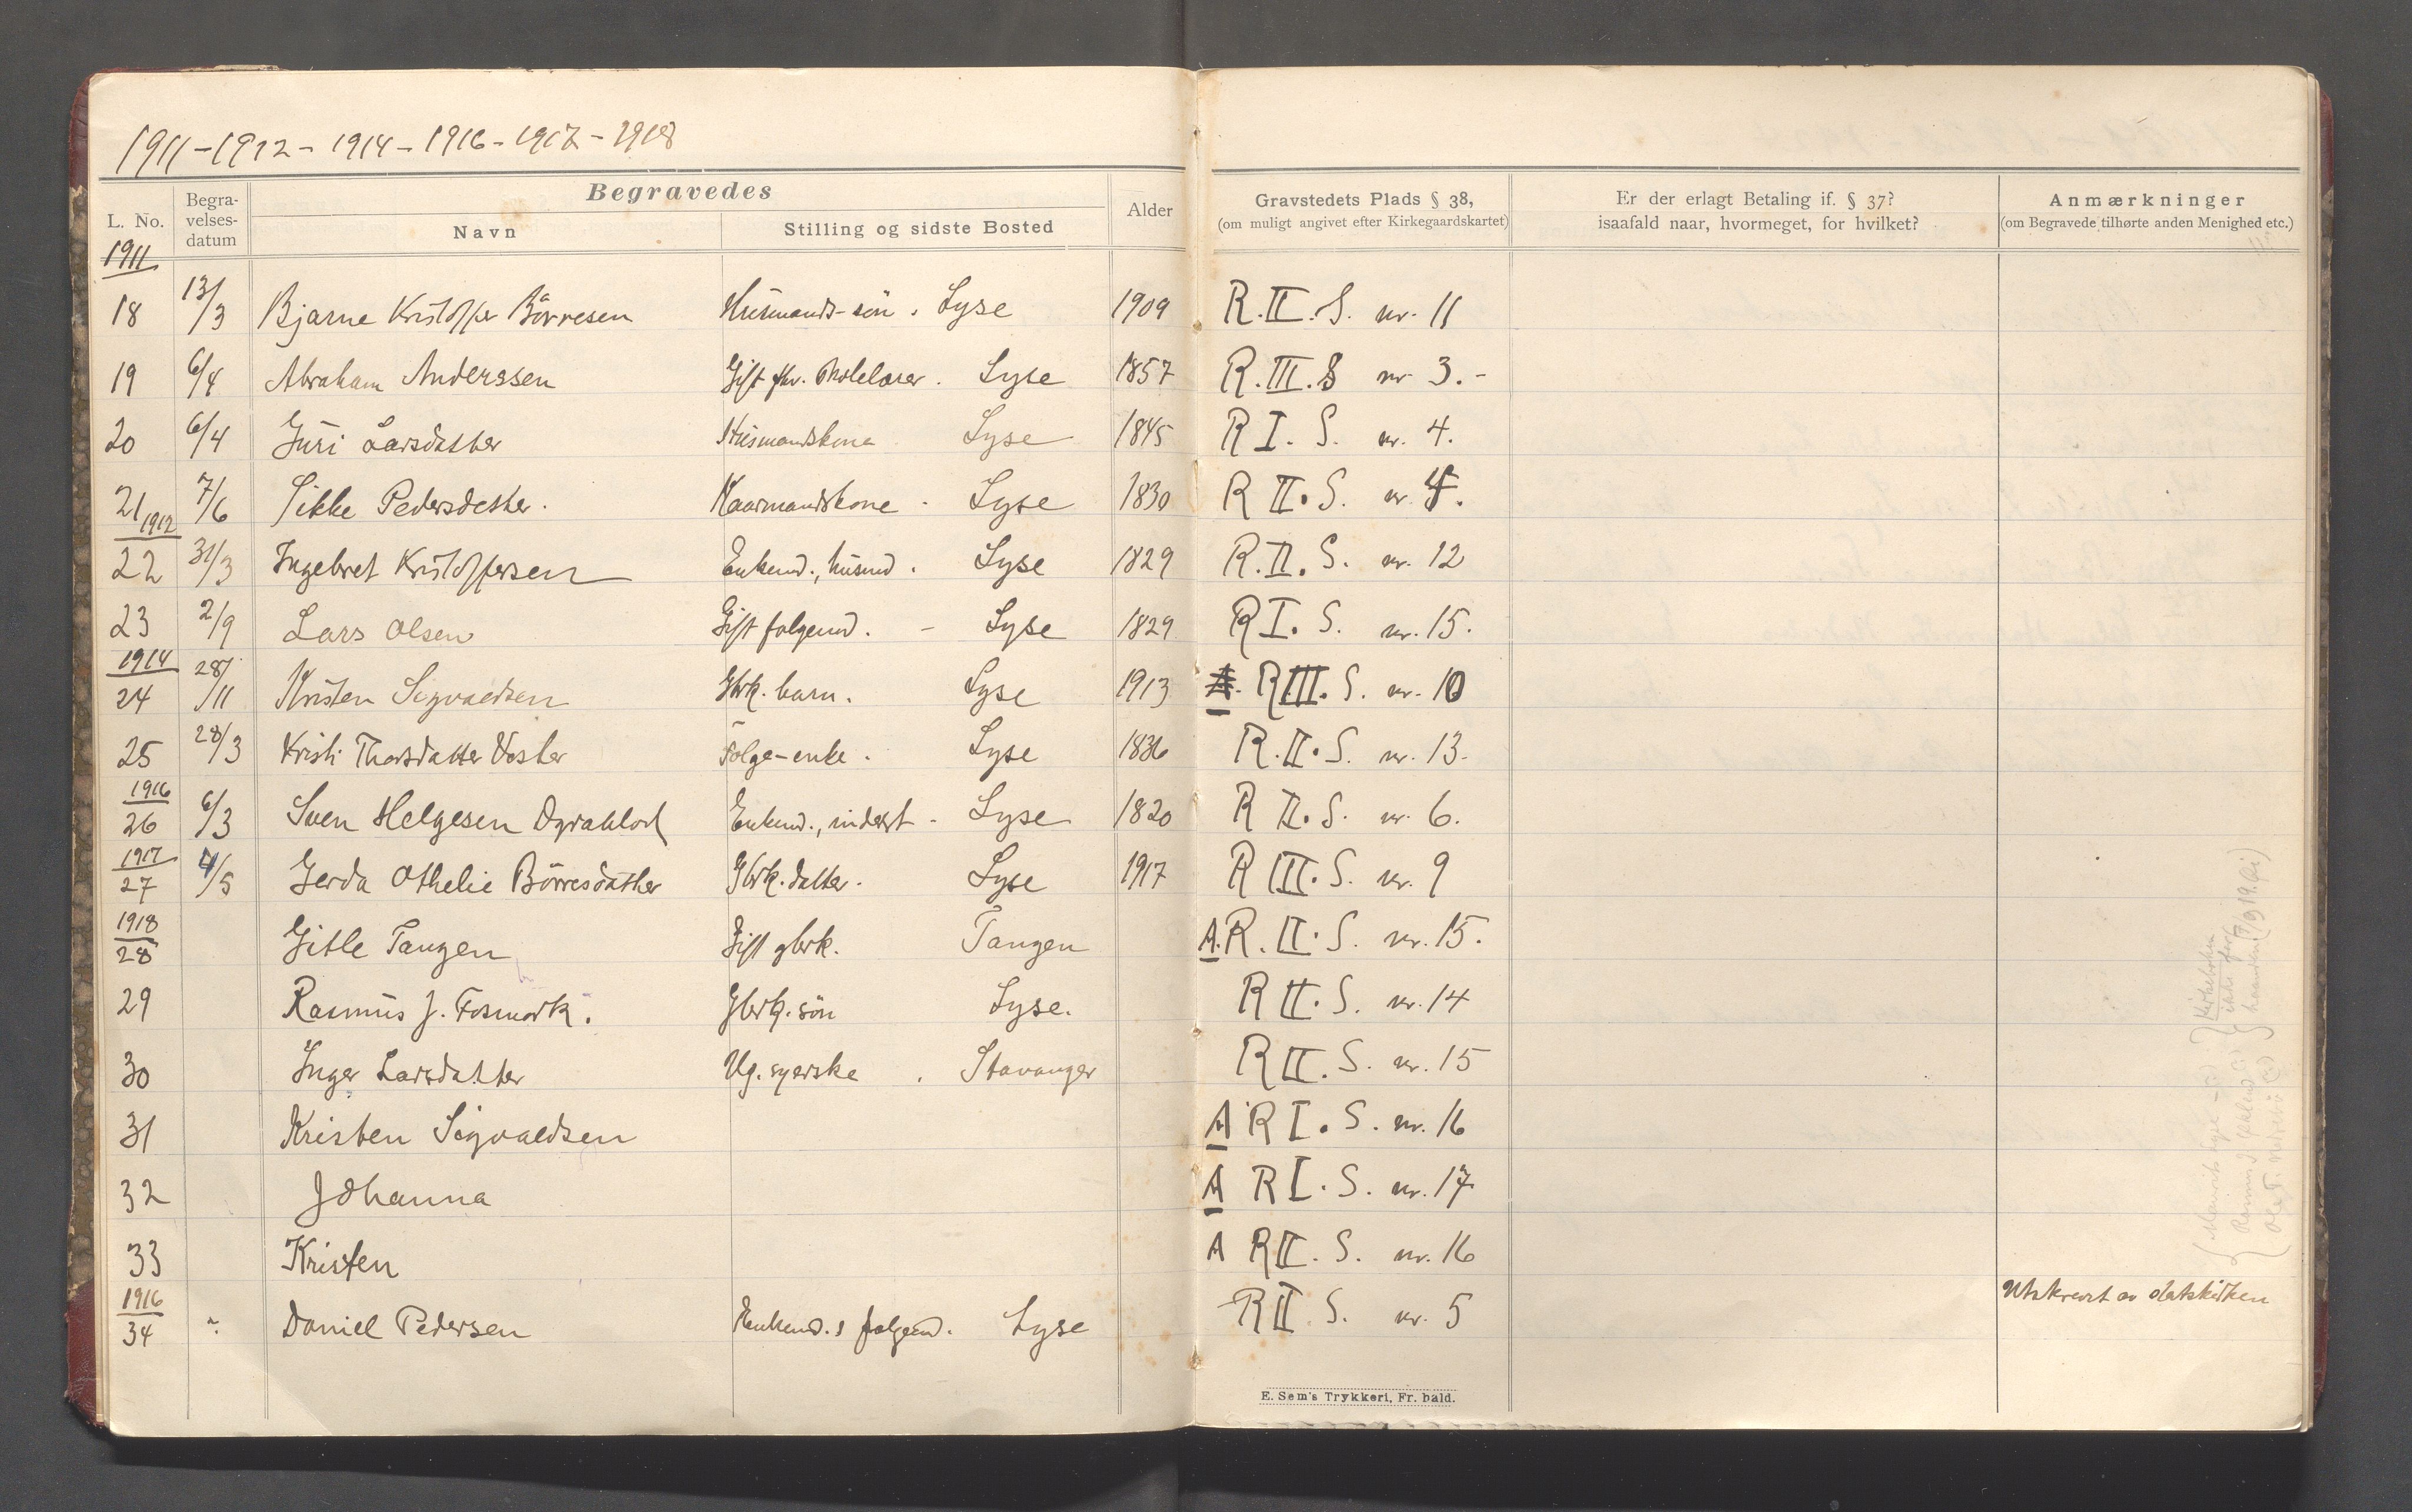 1911-1912-1914-1916-1917-1918
Begravedes
L. No. Begra-velses-datum Navn Stilling og sidste Bosted Alder Gravstedets Plads § 38, (om muligt angivet efter Kirkegaardskartet) Er der erlagt Betaling if. § 37? isaafald naar, hvormeget, for hvilket? Anmærkninger (om Begravede tilhørte anden Menighed etc.)
1911
18 13/3 Bjarne Kristoffer Börresen Husmands-sön. Lyse 1909 R. II. S. nr. 11
19 6/4 Abraham Anderssen Gift fhv. Lyse 1857 R. III. S nr 3.-
20 6/4 Guri Larsdatter Husmandskone Lyse 1845 R I. S. nr. 4.
21 7/6 Sikke Pedersdatter. Kaarmandskone - Lyse 1830 R II. S. nr. 4.
1912
22 31/3 Ingebret Kristoffersen Enkemd., husmd. Lyse 1829 R. II. S. nr. 12
23 2/9 Lars Olsen Gift folgemd. - Lyse 1829 R I. S. nr. 15.
1914
24 28/11 Kristen Sigvaldsen Gbrk. barn. Lyse 1913 R III. S. nr. 10
25 28/3 Kristi Thorsdatter Folge-enke. Lyse 1836 R. II. S. nr. 13.
1916
26 6/3 Sven Helgesen Enkemd., inderst - Lyse 1820 R II. S. nr. 6.
1917
27 4/5 Gerda Othelie Börresdatter Gbrk. datter. Lyse 1917 R III. S. nr. 9
1918
28 Gitle Tangen Gift gbrk. Tangen A. R. II. S. nr. 15.
29 Rasmus J. Fosmark. Gbrk. sön Lyse. R II. S. nr. 14
30 Inger Larsdatter Ug. syerske. Stavanger R II. S. nr. 15
31 Kristen Sigvaldsen A R I. S. nr. 16
32 Johanna A R I. S. nr. 17
33 Kristen A R II. S. nr. 16
1916
34 Daniel Pedersen Enkemd. folgemd. Lyse R II S. nr. 5 Utskrevet av statskirken
E. Sem's Trykkeri, Fr. hald.